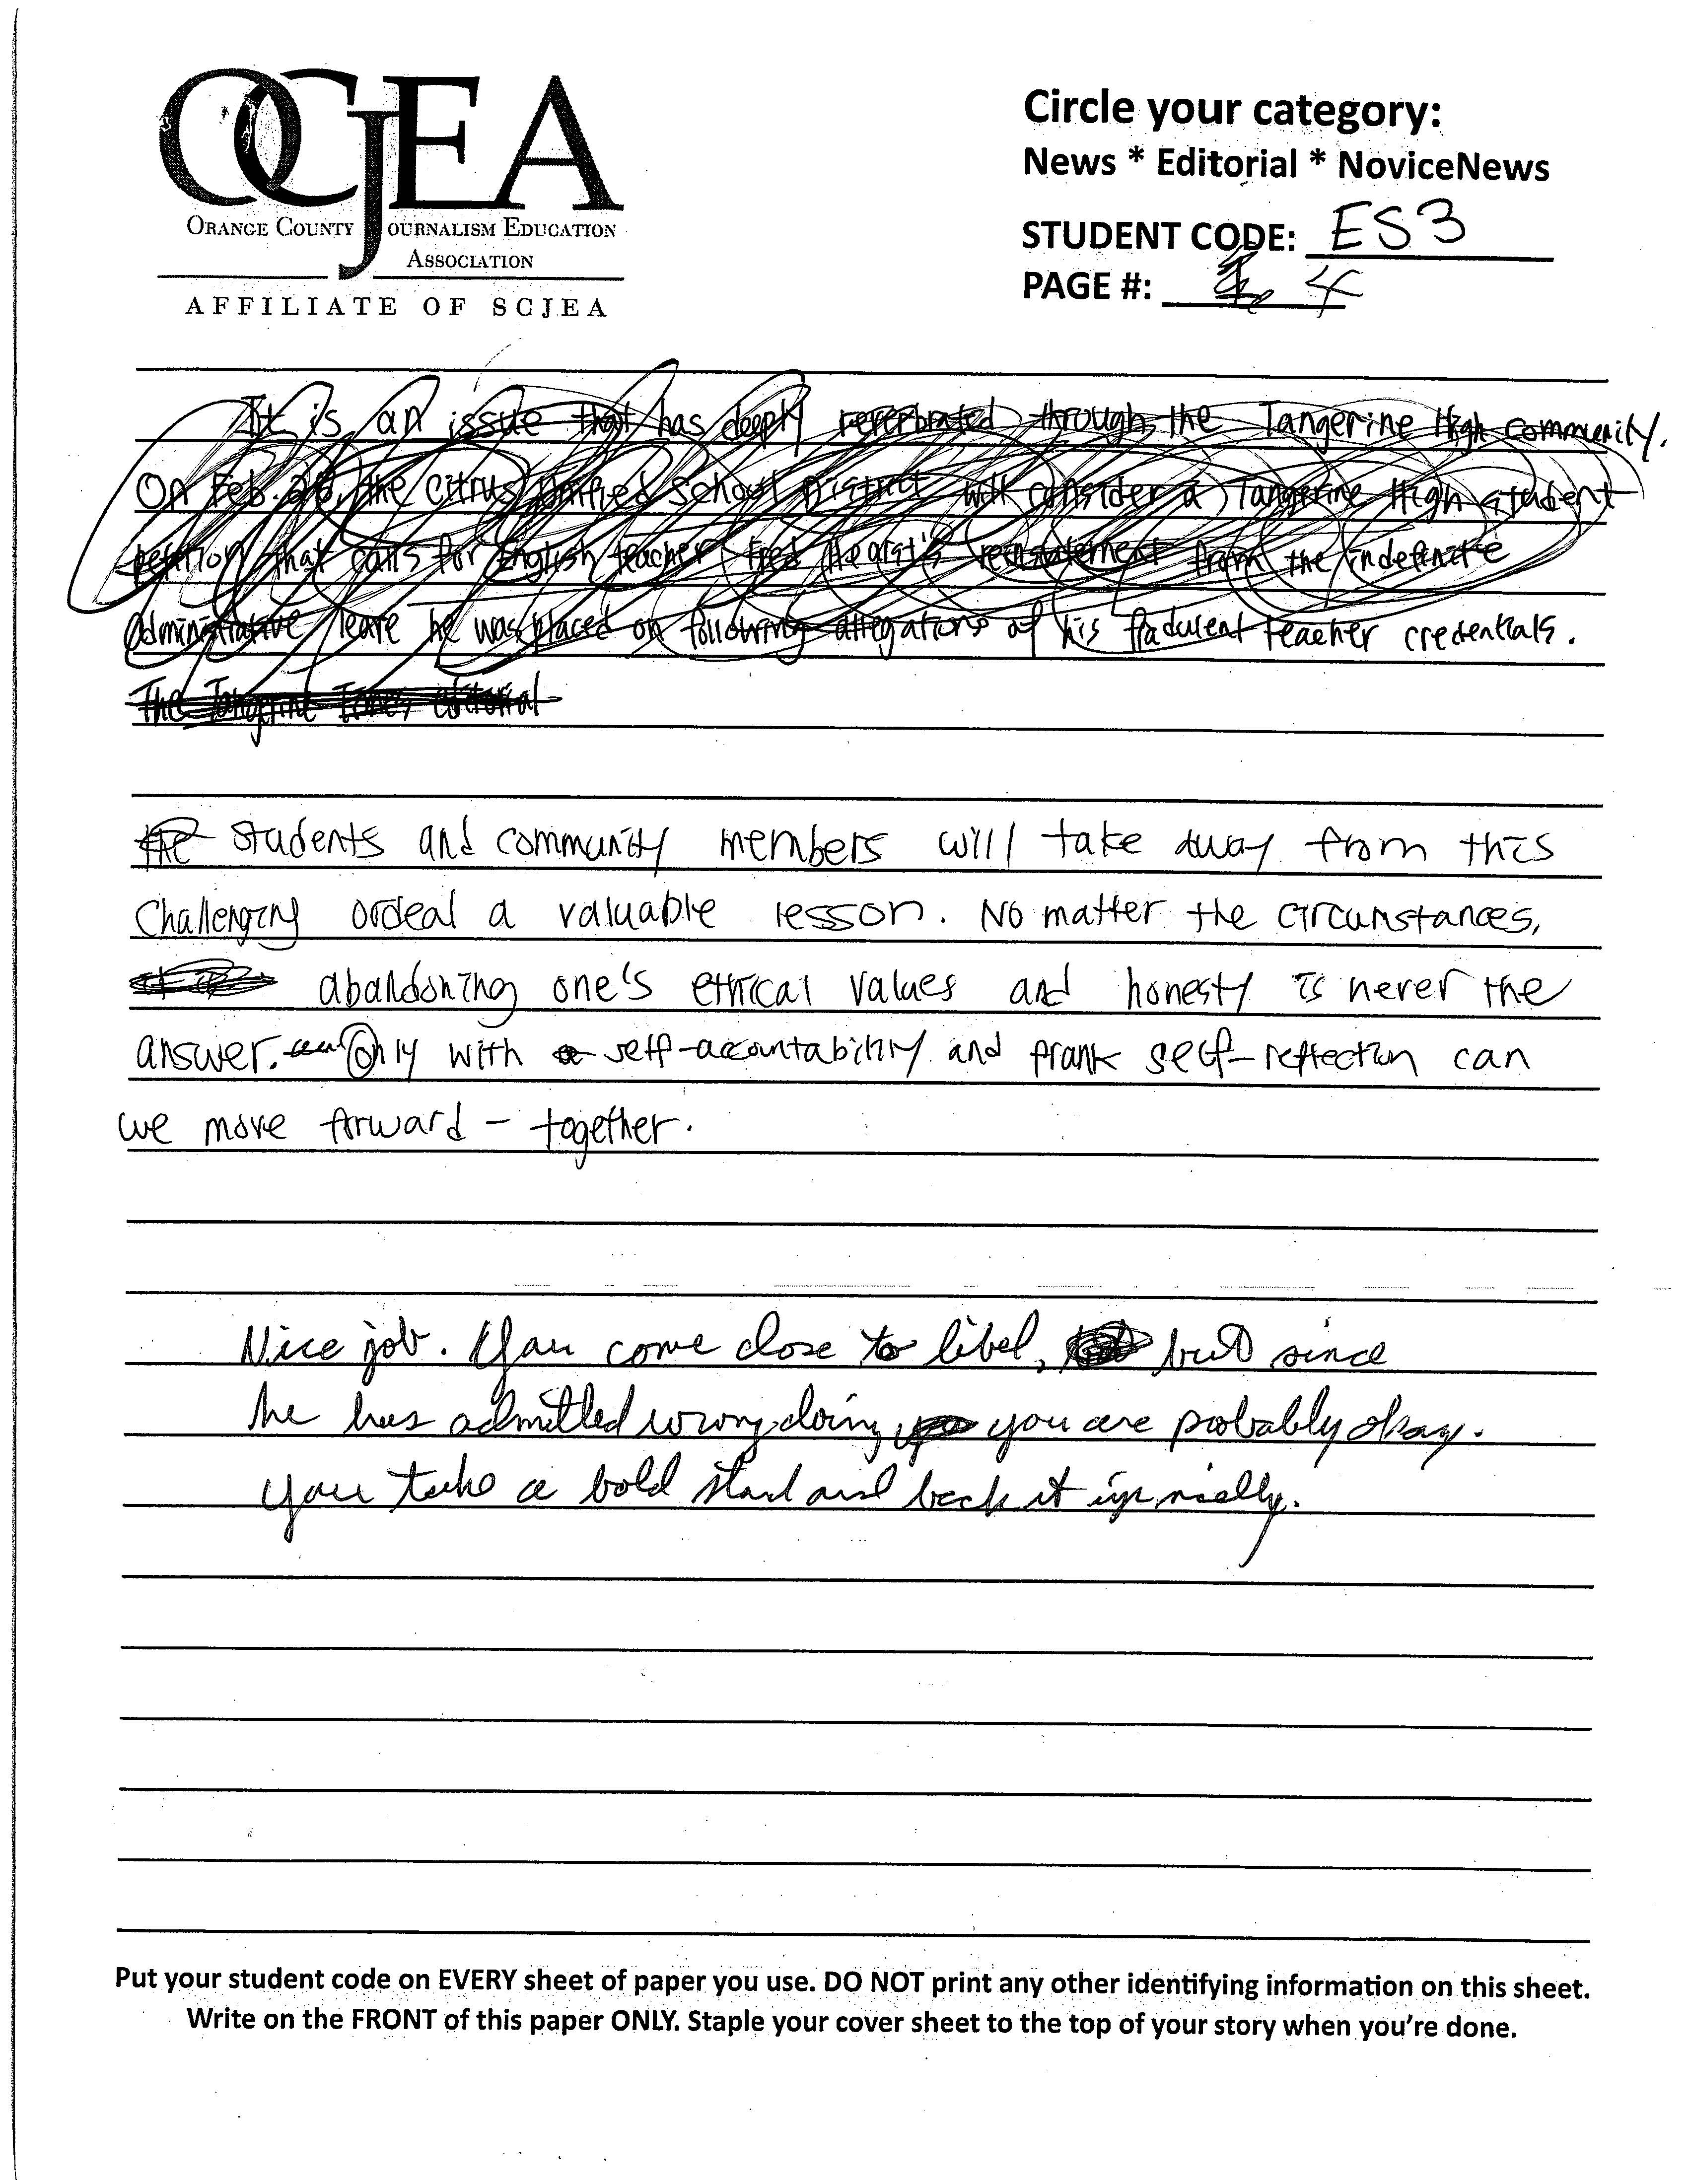 OCJEA
ORANGE COUNTY JOURNALISM EDUCATION
ASSOCIATION
AFFILIATE OF SCJEA
Circle your category:
News * Editorial * NoviceNews
STUDENT CODE: ES3
PAGE #: 4
It is an issue that has deeply reverbrated through the Tangerine High community.
On Feb. 26, the Citrus Unified School District will consider a Tangerine High student
petition that calls for English teacher Fred Hearst's reinstatement from the indefinite
administrative leave he was placed on following allegations of his fradulent teacher credentials.
The Tangerine Times editorial
the students and community members will take away from this
challenging ordeal a valuable lesson. No matter the circumstances,
abandoning one's ethical values and honesty is never the
answer. Only with self-accountability and frank self-reflection can
we move forward – together.
Nice job. You come close to libel, but since
he has admitted wrongdoing you are probably okay.
You take a bold stand and back it up nicely.
Put your student code on EVERY sheet of paper you use. DO NOT print any other identifying information on this sheet.
Write on the FRONT of this paper ONLY. Staple your cover sheet to the top of your story when you're done.